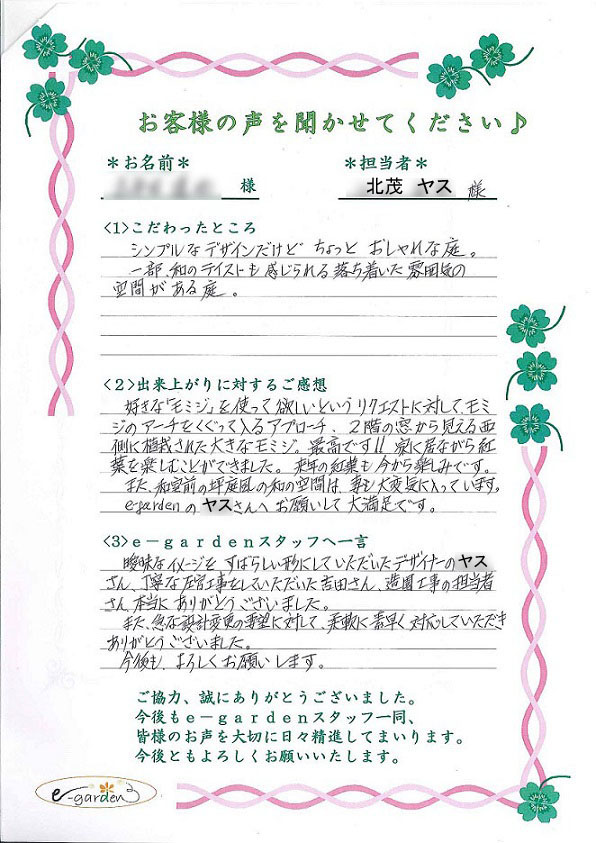 お客様の声を聞かせてください♪
*お名前* *担当者*
様 北茂 ヤス 様
<1>こだわったところ
シンプルなデザインだけど ちょっと おしゃれな庭。
一部、和のテイストも感じられる落ち着いた雰囲気の
空間がある庭。
<2>出来上がりに対するご感想
好きな「モミジ」を使って欲しいというリクエストに対して、モミ
ジのアーチをくぐって入るアプローチ、2階の窓から見える西
側に植栽された大きなモミジ。最高です!!家に居ながら紅
葉を楽しむことができました。来年の紅葉も今から楽しみです。
また、和室前の坪庭風の和の空間は、妻も大変気に入っています。
e-gardenの ヤスさんへお願いして大満足です。
<3>e-gardenスタッフへ一言
曖昧なイメージを すばらしい形にしていただいたデザイナーのヤス
さん、丁寧な左官工事をしていただいた吉田さん、造園工事の担当者
さん本当に ありがとうございました。
また、急な設計変更の要望に対して、柔軟に素早く対応していただき
ありがとうございました。
今後も、よろしくお願いします。
ご協力、誠にありがとうございました。
今後もe-gardenスタッフ一同、
皆様のお声を大切に日々精進してまいります。
今後ともよろしくお願いいたします。
e-garden